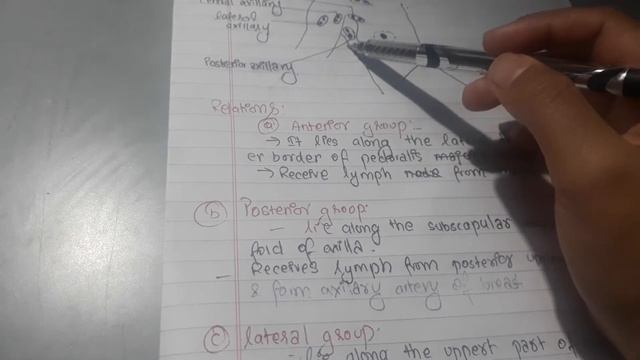 axillary
lateral
axillary
Posterior axillary
Relations:
(a) Anterior group:-
→ It lies along the
er border of
→ Receive lymph from
(b) Posterior group:
- lie along the subscapular
fold of axilla.
- Receives lymph from posterior
& form axillary artery of
(c) lateral group:
- lie along the uppert part of